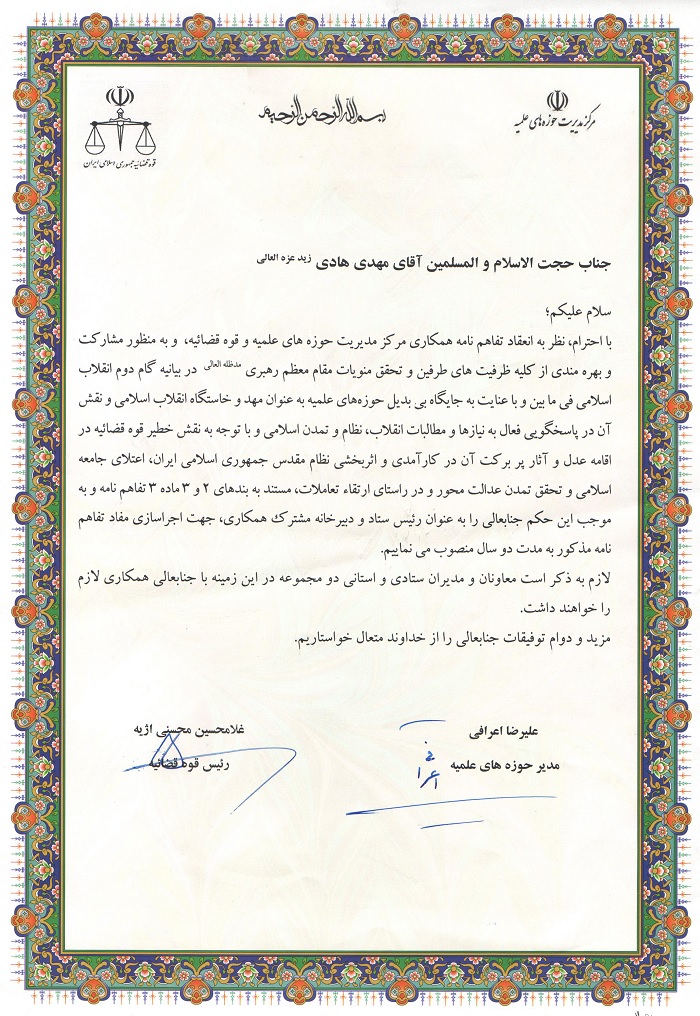 بسم الله الرحمن الرحیم
مرکز مدیریت حوزه‌های علمیه
قوه قضائیه جمهوری اسلامی ایران
جناب حجت الاسلام و المسلمین آقای مهدی هادی زید عزه العالی
سلام علیکم؛
با احترام، نظر به انعقاد تفاهم نامه همکاری مرکز مدیریت حوزه های علمیه و قوه قضائیه، و به منظور مشارکت
و بهره مندی از کلیه ظرفیت های طرفین و تحقق منویات مقام معظم رهبری مدظله العالی در بیانیه گام دوم انقلاب
اسلامی فی ما بین و با عنایت به جایگاه بی بدیل حوزه‌های علمیه به عنوان مهد و خاستگاه انقلاب اسلامی و نقش
آن در پاسخگویی فعال به نیازها و مطالبات انقلاب، نظام و تمدن اسلامی و با توجه به نقش خطیر قوه قضائیه در
اقامه عدل و آثار پر برکت آن در کارآمدی و اثربخشی نظام مقدس جمهوری اسلامی ایران، اعتلای جامعه
اسلامی و تحقق تمدن عدالت محور و در راستای ارتقاء تعاملات، مستند به بندهای ۲ و ۳ ماده ۳ تفاهم نامه و به
موجب این حکم جنابعالی را به عنوان رئیس ستاد و دبیرخانه مشترک همکاری، جهت اجراسازی مفاد تفاهم
نامه مذکور به مدت دو سال منصوب می نماییم.
لازم به ذکر است معاونان و مدیران ستادی و استانی دو مجموعه در این زمینه با جنابعالی همکاری لازم
را خواهند داشت.
مزید و دوام توفیقات جنابعالی را از خداوند متعال خواستاریم.
علیرضا اعرافی
مدیر حوزه های علمیه
غلامحسین محسنی اژیه
رئیس قوه قضائیه